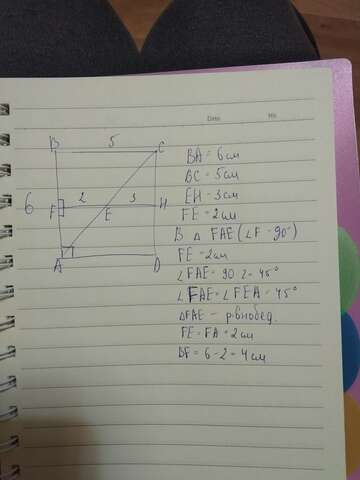 Date No
B 5 C
6 F 2 E 3 H
A D
BA = 6см
BC = 5см
EH = 3см
FE = 2см
В △ FAE (∠F = 90°)
FE = 2см
∠FAE = 90 : 2 = 45°
∠FAE = ∠FEA = 45°
△FAE – рвнобед.
FE = FA = 2см
BF = 6 - 2 = 4 см